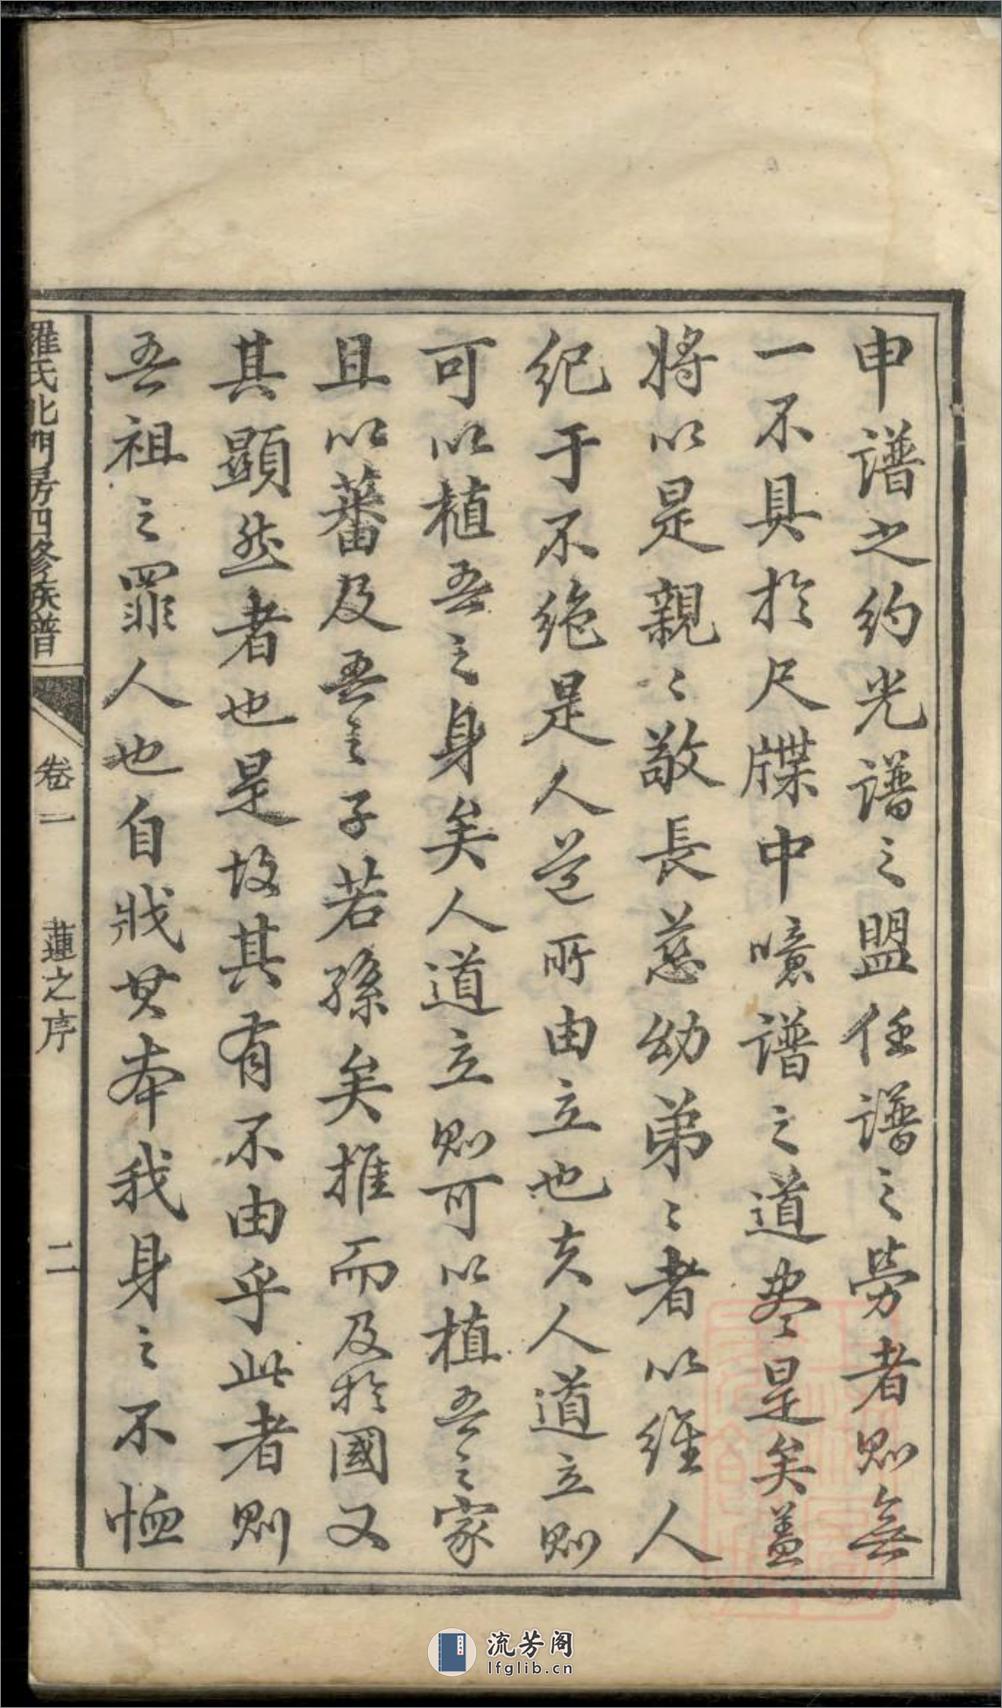 申譜之約光譜之盟任譜之勞者則無
一不具於尺牒中噫譜之道盡是矣蓋
將以是親〻敬長慈幼弟〻者以維人
紀于不絶是人道所由立也夫人道立則
可以植吾之身矣人道立則可以植吾之家
且以蕃及吾之子若孫矣推而及於國又
其顯然者也是故其有不由乎此者則
吾祖之罪人也自戕其本我身之不恤
羅氏北門房四修族譜
卷一
蓮之序
二
流芳阁
lfglib.cn